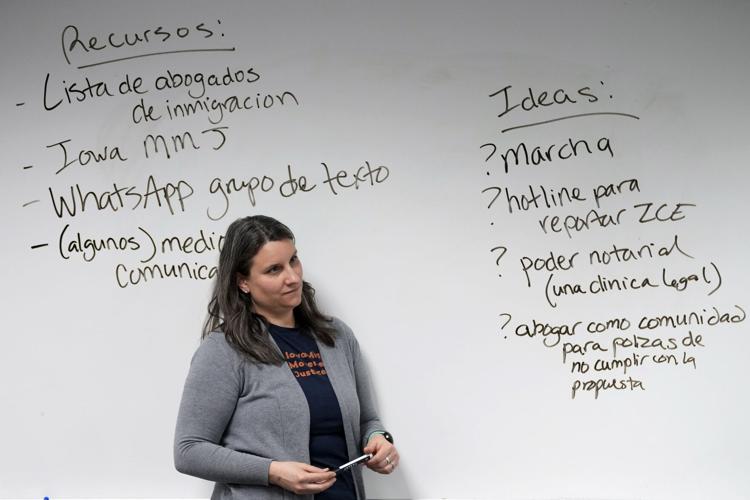 Recursos:
- Lista de abogados
de inmigracion
- Iowa MMJ
- WhatsApp grupo de texto
- (algunos) medio
comunica
Ideas:
? marcha
? hotline para
reportar ICE
? poder notarial
(una clinica legal)
? abogar como comunidad
para polizas de
no cumplir con la
propuesta
Justice